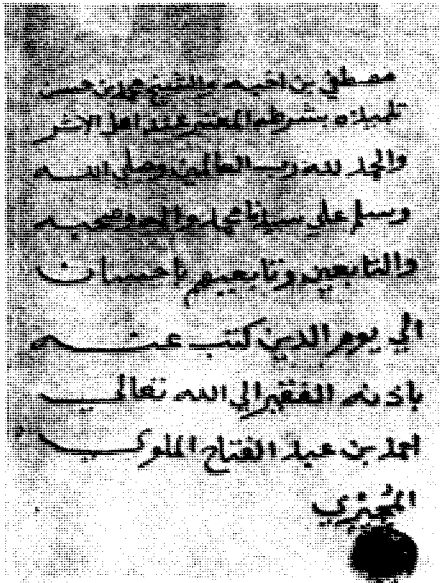 مصطفى بن اخيه والشيخ محمد بن حسن
تلميذه بشرطه المعتبر عند اهل الاثر
والحمد لله رب العالمين وصلى الله
وسلم علي سيدنا محمد واله وصحبه
والتابعين وتابعيهم باحسان
الي يوم الدين كتب عنه
باذنه الفقير الي الله تعالي
احمد بن عبد الفتاح الملوي
المجيري